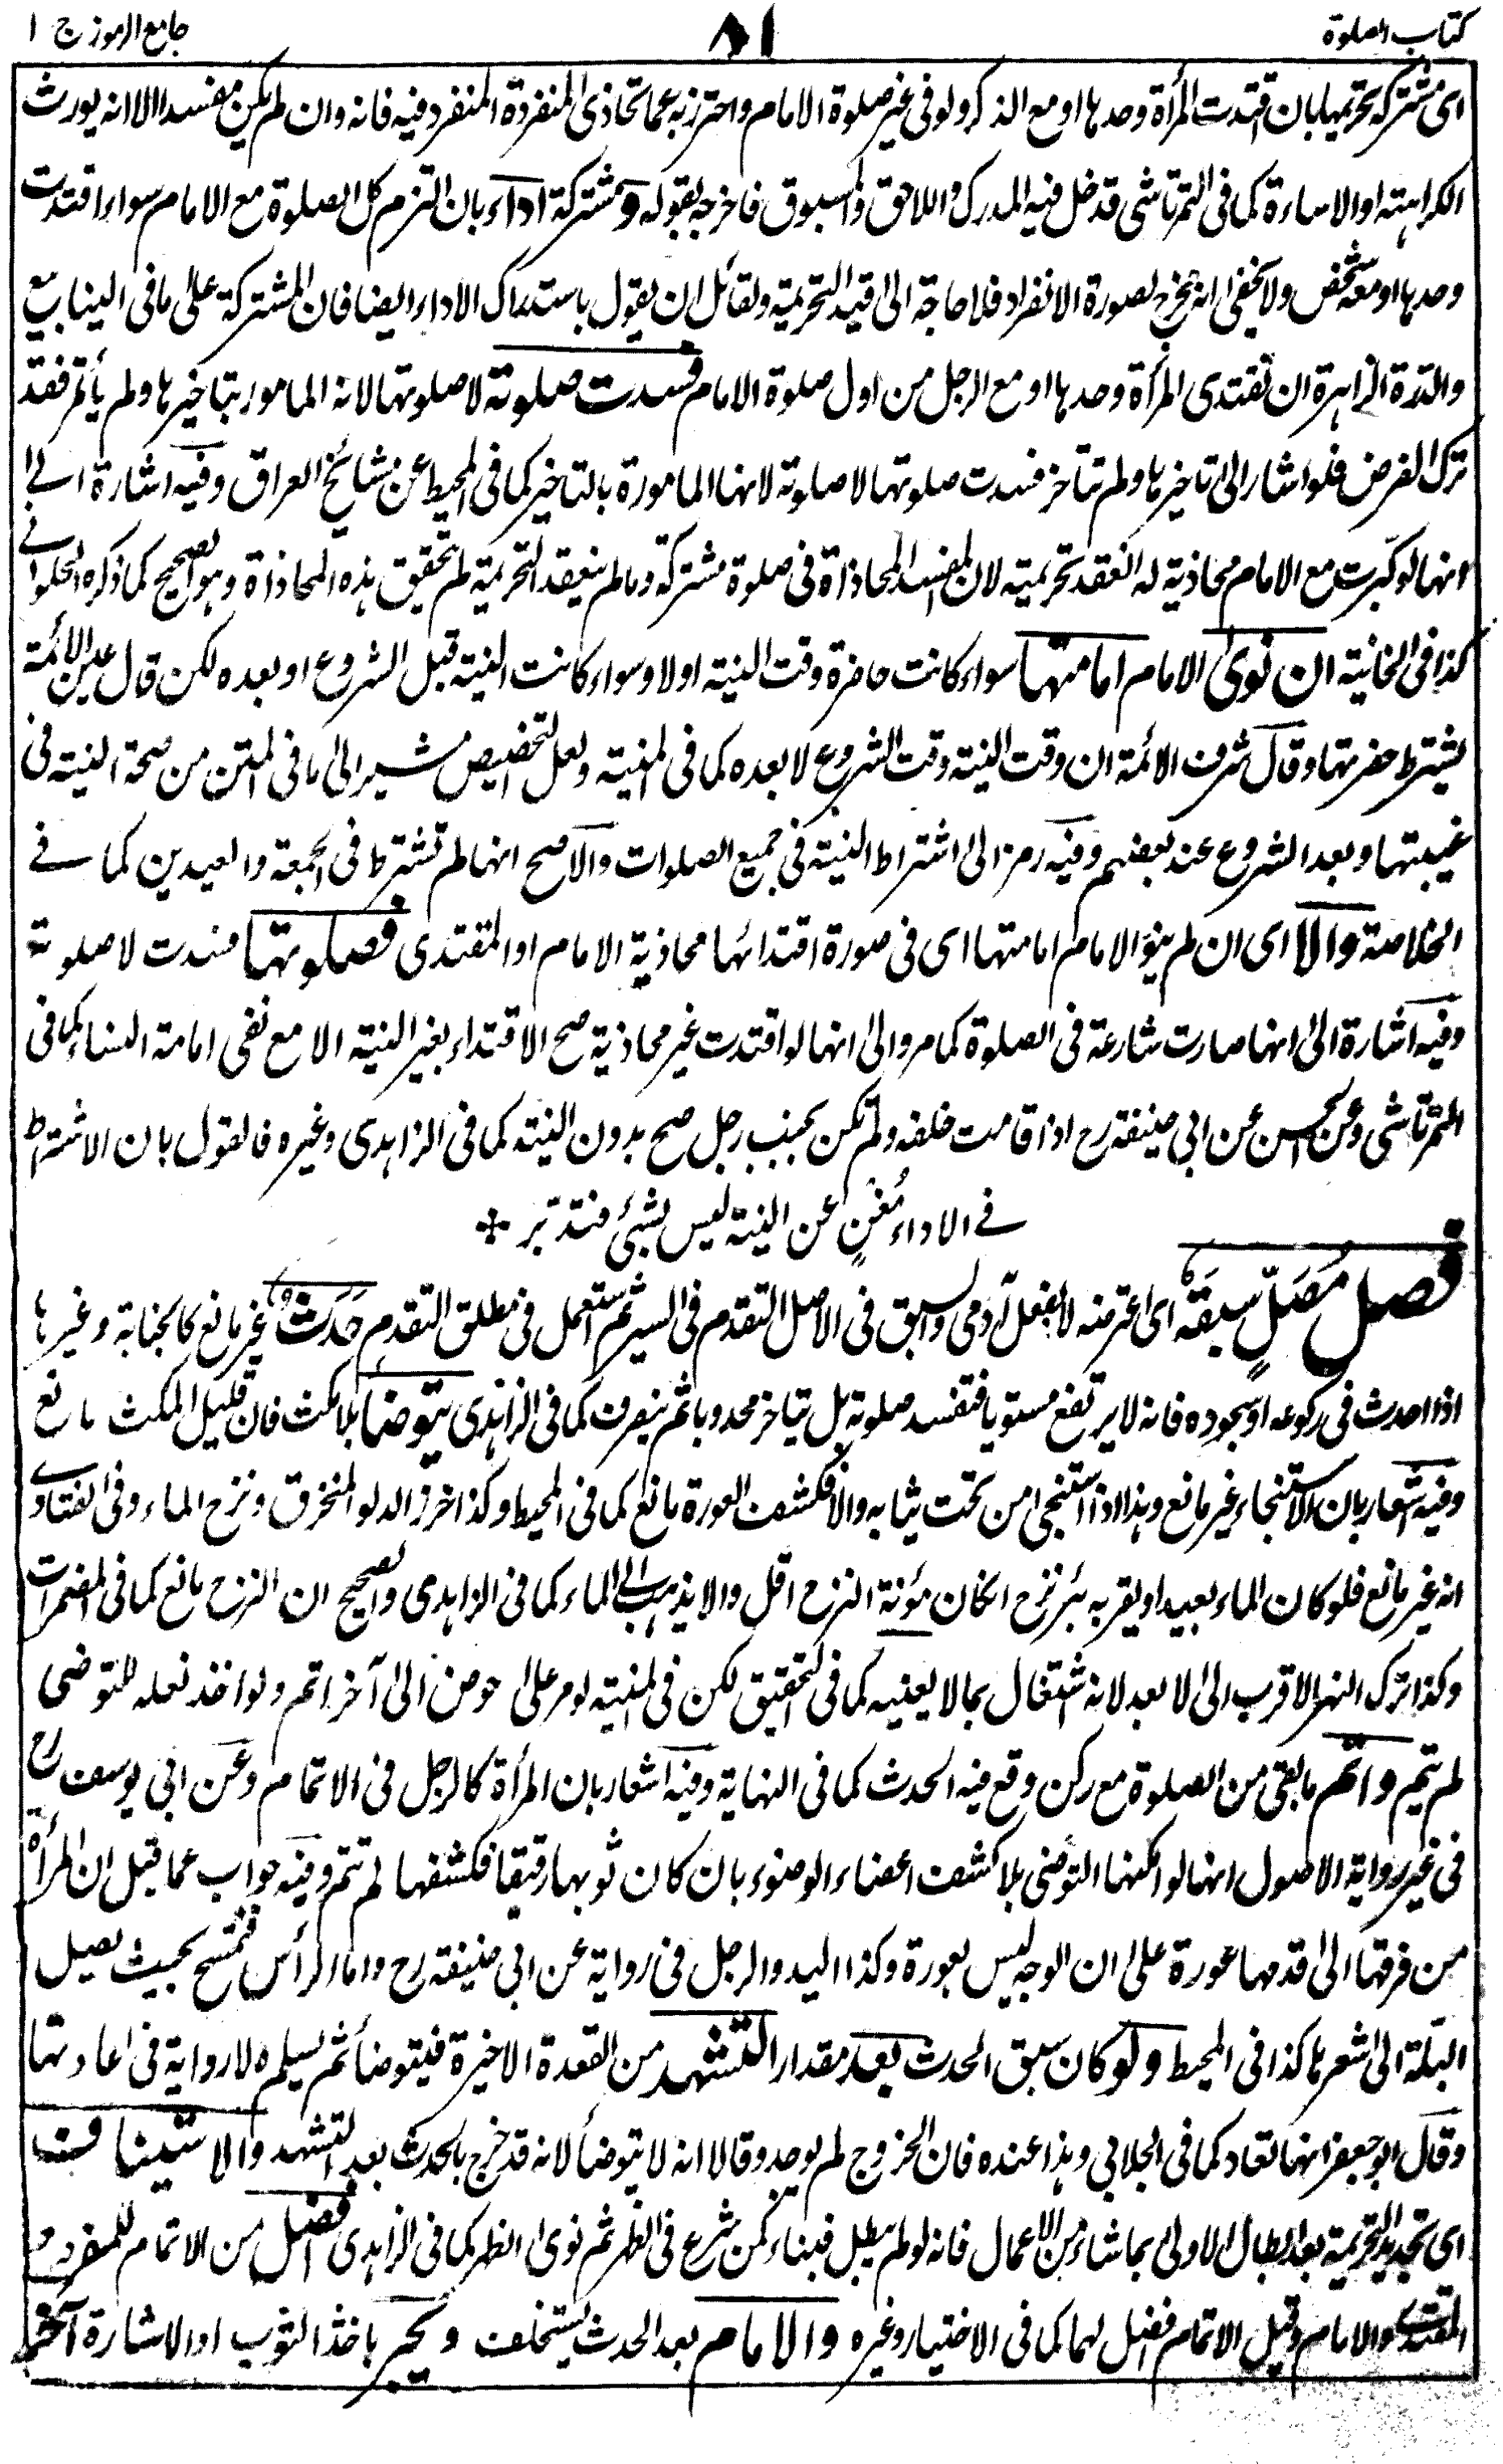 كتاب الصلوة
٨١
جامع الرموز ج ١
اى مشتركة تحريمتها بان اقتدت المرأة وحدها او مع الذكر ولو فى غير صلوة الامام واحترز به عما تحاذى المنفردة المنفرد فيه فانه وان لم يكن مفسدا الا انه يورث
الكراهته او الاساءة كما فى التمرتاشى قد دخل فيه المدرك واللاحق والمسبوق فاخرجه بقوله ومشتركة اداء بان التزم كل الصلوة مع الامام سواء اقتدت
وحدها او معه شخص ولا يخفى انه يخرج لصورة الانفراد فلا حاجة الى قيد التحريمة ولقائل ان يقول باستدراك الاداء ايضا فان المشتركة على ما فى الينابيع
والدرة الزاهرة ان تقتدى المرأة وحدها او مع الرجل من اول صلوة الامام فسدت صلوته لا صلوتها لانه المامور بتاخيرها ولم يأتمر فقد
ترك الفرض فلو اشار الى تاخيرها ولم تتاخر فسدت صلوتها لا صلوته لانها المامورة بالتاخير كما فى المحيط عن مشائخ العراق وفيه اشارة الے
انها لو كبرت مع الامام محاذية له انعقد تحريمته لان المفسد المحاذاة فى صلوة مشتركة وما لم ينعقد التحريمة لم تحقيق هذه المحاذاة وهو الصحيح كما ذكره الحلوانے
كذا فى الخانية ان نوى الامام امامتها سواء كانت حاضرة وقت النية اولا وسواء كانت النية قبل الشروع او بعده لكن قال عين الائمة
يشترط حضرتها وقال شرف الائمة ان وقت النية وقت الشروع لا بعده كما فى المنية ولعل التخصيص مشير الى ما فى المتن من صحة النية فى
غيبتها وبعد الشروع عند بعضهم وفيه رمز الى اشتراط النية فى جميع الصلوات والاصح انها لم تشترط فى الجمعة والعيدين كما فے
الخلاصة والا اى ان لم ينو الامام امامتها اى فى صورة اقتدائها محاذية الامام او المقتدى فصلوتها فسدت لا صلوته
وفيه اشارة الى انها صارت شارعة فى الصلوة كما مر والى انها لو اقتدت غير محاذية صح الاقتداء بغير النية الا مع نفى امامة النساء كما فى
التمرتاشى وعن الحسن عن ابى حنيفة رح اذا قامت خلفه ولم تكن بجنب رجل صح بدون النية كما فى الزاهدى وغيره فالقول بان الاشتراط
فے الاداء مُغنٍ عن النية ليس بشئ فتدبر
فصل مُصَلٍّ سبقَهُ اى اعترضه لا بفعل آدمى والسبق فى الاصل التقدم فى السير ثم استعمل فى مطلق التقدم حَدَثٌ غير مانع كالجنابة وغيرها
اذا احدث فى ركوعه او سجوده فانه لا يرتفع مستويا فتفسد صلوته بل يتاخر محدوبا ثم ينصرف كما فى الزاهدى يتوضأ بلا مكث فان قليل المكث مانع
وفيه اشعار بان الاستنجاء غير مانع وهذا اذا استنجى من تحت ثيابه والا فكشف العورة مانع كما فى المحيط وكذا خرز الدلو المنخرق ونزح الماء وفى الفتاوے
انه غير مانع فلو كان الماء بعيدا وبقربه بئر نزح ان كان مؤنة النزح اقل والا يذهب الى الماء كما فى الزاهدى والصحيح ان النزح مانع كما فى المضمرات
وكذا ترك النهر الاقرب الى الابعد لانه اشتغال بما لا يعنيه كما فى التحقيق لكن فى المنية لو مر على حوض الى آخر اتم ولو اخذ نعله للتوضى
لم يتم واتم ما بقى من الصلوة مع ركن وقع فيه الحدث كما فى النهاية وفيه اشعار بان المرأة كالرجل فى الاتمام وعن ابى يوسف رح
فى غير رواية الاصول انها لو امكنها التوضى بلا كشف اعضاء الوضوء بان كان ثوبها رقيقا فكشفها لم تتم وفيه جواب عما قيل ان المرأة
من فرقها الى قدمها عورة على ان الوجه ليس بعورة وكذا اليد والرجل فى رواية عن ابى حنيفة رح واما الرأس فتمسح بحيث يصيل
البلة الى شعرها كذا فى المحيط ولو كان سبق الحدث بعد مقدار التشهد من القعدة الاخيرة فيتوضأ ثم يسلم لا رواية فى اعادتها
وقال ابو جعفر انها تعاد كما فى الجلابى وهذا عنده فان الخروج لم يوجد وقالا انه لا يتوضأ لانه قد خرج بالحدث بعد التشهد والاستيناف
اى تجديد التحريمة بعد ابطال الاولى بما شاء من الاعمال فانه لو لم يبطل فبناء كمن شرع فى الظهر ثم نوى الظهر كما فى الزاهدى افضل من الاتمام للمنفرد و
المقتدى والامام وقيل الاتمام افضل لهما كما فى الاختيار وغيره والامام بعد الحدث يستخلف ويجر باخذ الثوب او الاشارة آخر